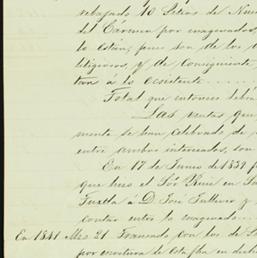 rebajado 10 Pesos de
del Cármen por enagenados,
lo están, pues son de los
litigiosos, y de consiguiente
tan á lo existente
Total que entonces debia
Las ventas que
mente se han celebrado de
entre ambos interesados, son
En 17 de Junio de 1839
que hizo el Sor. en
Tuxtla á D. José Gutierrez y
contrato entre lo enagenado
En 1841 Mzo 21. Firmando con los de
por escritura de esta fha en